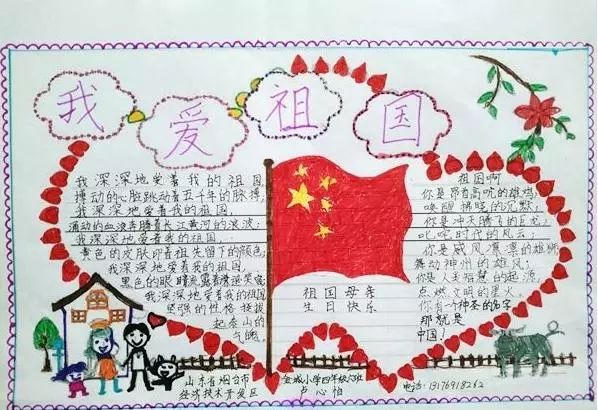 我爱祖国
我深深地爱着我的祖国
搏动的心脏跳动着五千年的脉搏
我深深地爱着我的祖国,
涌动的血液奔腾着长江黄河的浪波;
我深深地爱着我的祖国
黄色的皮肤印着祖先留下的颜色;
我深深地爱着我的祖国,
黑色的眼睛流露着
我深深地爱着我的祖国
坚强的性格挺拔
起泰山的
气魄
祖国母亲
生日快乐
祖国啊
你是昂首高吭的雄鸡
唤醒拂晓的沉默;
你是冲天腾飞的巨龙,
叱咤时代的风云;
你是威风凛凛的雄狮
舞动神州的雄风;
你是人类智慧的起源,
点燃文明的星火,
你有个神圣的名字
那就是
中国!
山东省烟台市
经济技术开发区
金城小学四年级六班
卢心怡
电话:13176918262